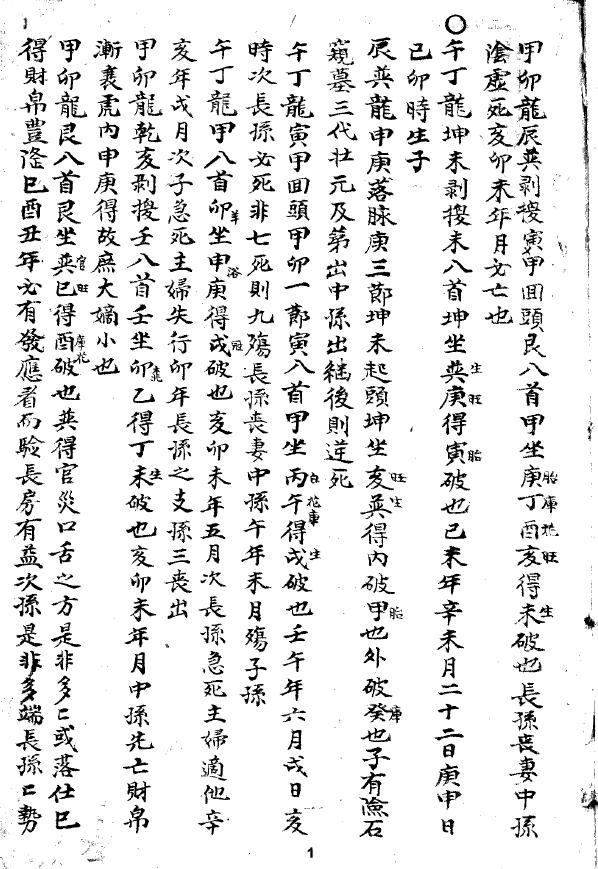 甲卯龍辰巽剥換寅甲回頭艮八首甲坐庚丁酉亥得未破也長孫喪妻中孫
陰虛死亥卯未年月必亡也
○午丁龍坤未剥換未八首坤坐巽庚得寅破也己未年辛未月二十二日庚申日
己卯時生子
辰巽龍申庚落脉庚三節坤未起頭坤坐亥巽得內破甲也外破癸也子有陰石
窺墓三代壮元及第出中孫出継後則逆死
午丁龍寅甲回頭甲卯一節寅八首甲坐丙午得戌破也壬午年六月戌日亥
時次長孫必死非七死則九殤長孫喪妻中孫午年未月殤子孫
午丁龍甲八首卯坐申庚得戌破也亥卯未年五月次長孫急死主婦適他辛
亥年戌月次子急死主婦失行卯年長孫之支孫三喪出
甲卯龍乾亥剥換壬八首壬坐卯乙得丁未破也亥卯未年月中孫先亡財帛
漸衰虎內申庚得故庶大嫡小也
甲卯龍艮八首艮坐巽巳得酉破也巽得官災口舌之方是非多亡或落仕巳
得財帛豊隆巳酉丑年必有發應者而驗長房有益次孫是非多端長孫亡勢
1